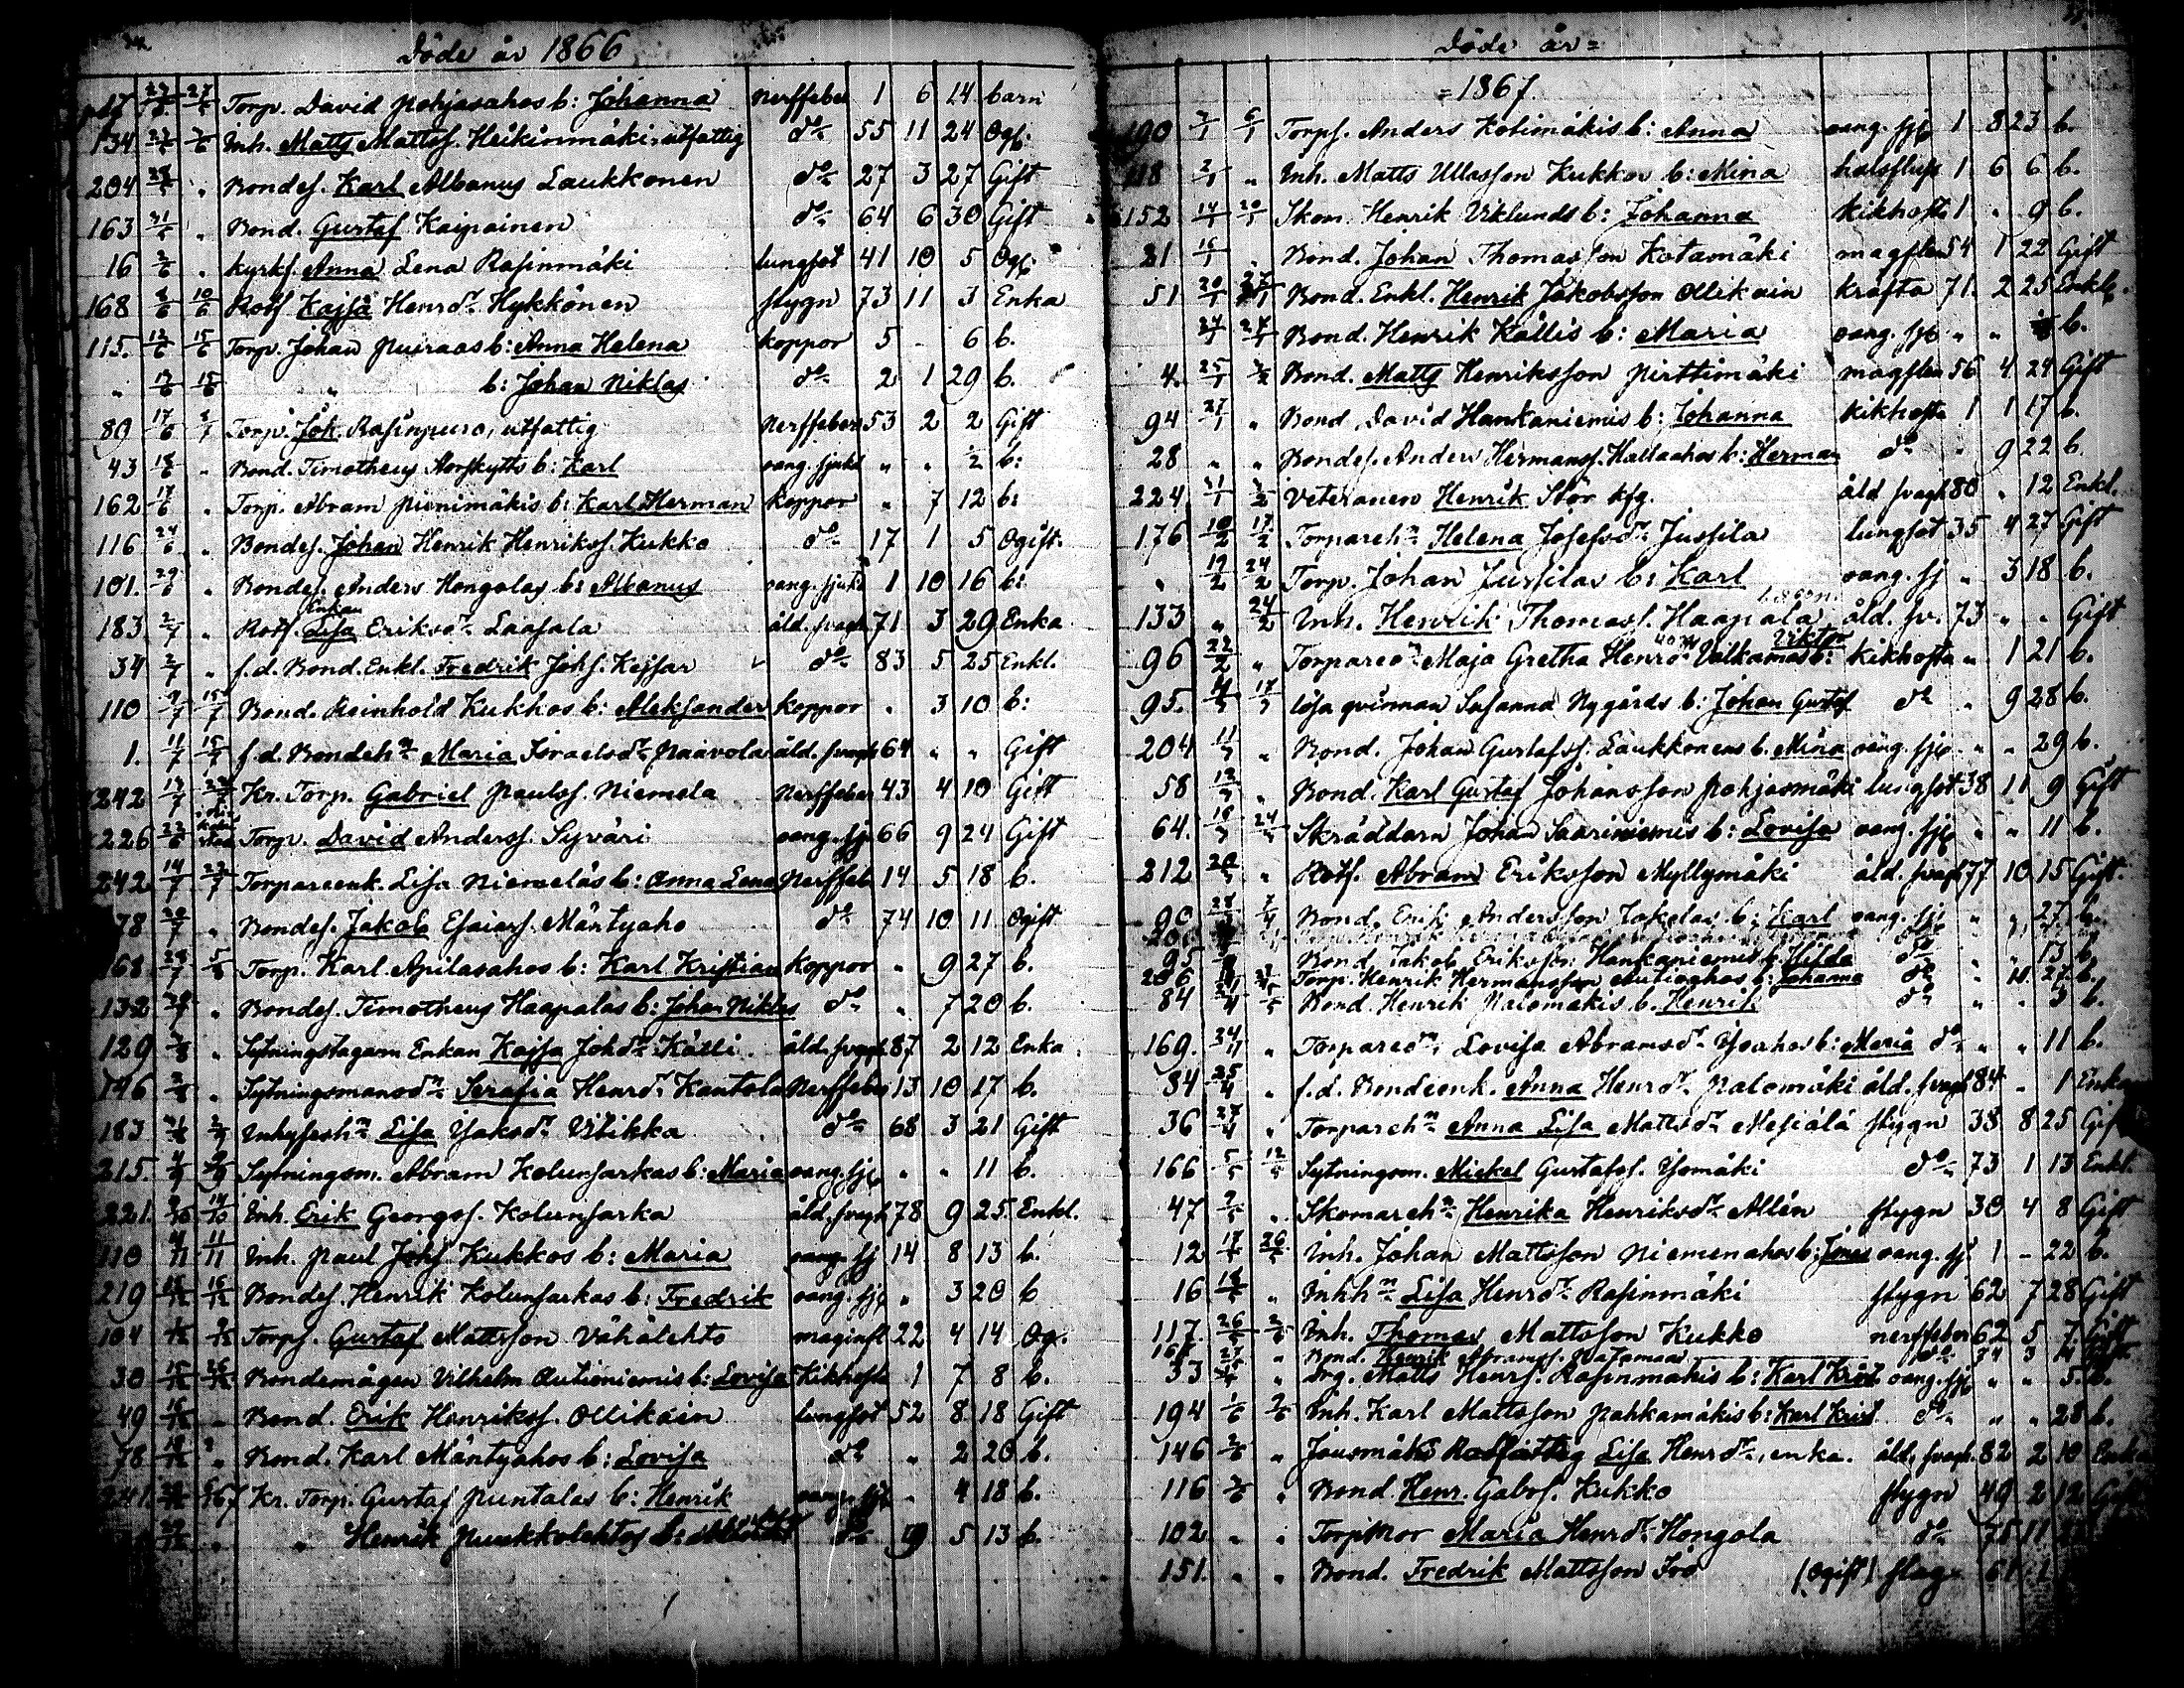 Döde år 1866
17 27/5 27/5 Torp. David Pohjasahos b: Johanna Nerffeber 1 6 14 barn
134 Inh. Matts Mattsf. Heikinmäki, utfattig do 55 11 24 Ogf.
204 Bondef. Karl Albanus Laukkonen do 27 3 27 Gift
163 31/5 " Bond. Gustaf Kaipainen do 64 6 30 Gift
16 2/6 " Kyrkf. Anna Lena Rasinmäki lungsot 41 10 5 Ogf
168 8/6 10/6 Rotf Kajsa Henrdr Hykkönen stygn 73 11 3 Enka
115. 12/6 15/6 Torp. Johan Puraas b: Anna Helena koppor 5 - 6 b.
" 13/6 15/6 " b: Johan Niklas do 2 1 29 b.
89 17/6 1/7 Torp. Joh. Rasinpuro, utfattig Nerffeber 53 2 2 Gift
43 18/6 " Bond. Timotheus Storskytts b: Karl oang. sjukd " " 1/2 b:
162 17/6 " Torp. Abram Pienimäkis b: Karl Herman koppor " 7 12 b:
116 24/6 " Bondef. Johan Henrik Henriksf. Kukko do 17 1 5 Ogift.
101. 29/6 " Bondef. Anders Hongolas b: Albanus oang. sjukd 1 10 16 b:
183 2/7 " Rotf. Enkan Lisa Eriksdr Laasala åld. svagh 71 3 29 Enka
34 2/7 " f.d. Bond. Enkl. Fredrik Johf. Kejsar do 83 5 25 Enkl.
110 9/7 15/7 Bond. Reinhold Kukkos b: Aleksander koppor . 3 10 b:
1. 11/7 15/7 f.d. Bondehn Maria Israelsdr Paavola åld. svagh 64 " " Gift
242 13/7 22/7 Kr. Torp. Gabriel Paulsf. Niemelä Nerffeber 43 4 10 Gift
226 Torp. David Andersf. Syväri oang. sj. 66 9 24 Gift
242 14/7 22/7 Torpareenk. Lisa Niemeläs b: Anna Lena Nerffeb. 14 5 18 b.
78 20/7 " Bondef. Jakob Esaiasf. Mäntyaho do 74 10 11 Ogift
168 28/7 5/8 Torp. Karl Apilasahos b: Karl Kristian koppor " 9 27 b.
132 29/7 " Bondef. Timotheus Haapalas b: Johan Niklas do " 7 20 b.
129 " Sytningstagarn Enkan Kajsa Johdr Källi åld. svagh 87 2 12 Enka
146 " Sytningsmansdr Serafia Henrdr Kantola Nerffeber 13 10 17 b.
183 31/8 2/9 Inhyseshn Lisa Isaksdr Vitikka do 68 3 21 Gift
215. 4/9 9/9 Sytningsm. Abram Kolunsarkas b: Maria oang. sj. " " 11 b.
221. 14/10 Inh. Erik Georgsf. Kolunsarka åld. svagh 78 9 25 Enkl.
110 4/11 11/11 Inh. Paul Johf. Kukkos b: Maria oang. sj 14 8 13 b.
219 16/12 Bondef. Henrik Kolunsarkas b: Fredrik oang. sj. " 3 20 b
104 9/12 Torpf. Gustaf Mattsson Vähälehto maginfl 22 4 14 Og.
30 15/12 26/12 Bondemågen Vilhelm Autioniemis b: Lovisa Kikhosta 1 7 8 b.
49 16/12 " Bond. Erik Henriksf. Ollikain lungsot 52 8 18 Gift
78 " Bond. Karl Mäntyahos b: Lovisa do " 2 20 b.
241. Kr. Torp. Gustaf Puntalas b: Henrik oang. sj. " 4 18 b.
" Henrik Puukkolehtos b: do 5 13 b.
Döde år =
= 1867.
190 6/1 Torpf. Anders Kotimäkis b: Anna oang. sj 1 8 23 b.
118 2/1 " Inh. Matts Ullasson Kukkos b: Mina halsfluss 1 6 6 b.
152 14/1 20/1 Skom. Henrik Viklunds b: Johanna kikhosta 1 " 9 b.
21 15/1 Bond. Johan Thomasson Kotamäki magflen 54 1 22 Gift
51 20/1 27/1 Bond. Enkl. Henrik Jakobsson Ollikain kräfta 71. 2 25 Enkl.
24/1 27/1 Bond. Henrik Källis b: Maria oang. sj. " " b.
4. 25/1 3/2 Bond. Matts Henriksson Pirttimäki magflen 56 4 24 Gift
94 27/1 " Bond. David Hankaniemis b: Johanna kikhosta 1 1 17 b.
28 " " Bondef. Anders Hermansf. Hallaahos b: Herman do " 9 22 b.
224 31/1 3/2 Veteranen Henrik Stör kfg. åld svagh 80 " 12 Enkl.
176 10/2 17/2 Torparehn Helena Josefsdr Jussila lungsot 35 4 27 Gift
" 19/2 24/2 Torp. Johan Jussilas b: Karl oang. sj " 3 18 b.
133 " 24/2 Inh. Henrik Thomasf. Haapala åld. sv. 73 " " Gift
96 22/2 " Torparedr Maja Gretha Henrdr Valkamas b: Viktor kikhosta " 1 21 b.
95. 17/3 lösa qvinnan Susanna Nygårds b: Johan Gustaf do " 9 28 b.
204 11/3 " Bond. Johan Gustafsf. Laukkonens b. Mina oang. sj. " " 29 b.
58 12/3 " Bond. Karl Gustaf Johansson Pohjasmäki lungsot 38 11 9 Gift
64. 24/3 Skräddarn Johan Saariniemis b: Lovisa oang. sj. " " 11 b.
212 " Rotf. Abram Eriksson Myllymäki åld. svagh 77 10 15 Gift.
90 Bond. Erik Andersson Jokelas b: Karl oang. sj. " " 27 b.
95 Bond. Jakob Eriksson Hankaniemis b. Hilda do " " 13 b
206 Torp. Henrik Hermansson Autioahos b: Johanna do " 11 27 b.
84 Bond. Henrik Palomäkis b. Henrik do " " 3 b.
169. 24/4 " Torparedr Lovisa Abramsdr Isoahos b: Maria do " " 11 b.
84 25/4 " f.d. Bondeenk. Anna Henrdr Palomäki åld. svagh 84 - 1 Enka
36 27/4 " Torparehn Anna Lisa Mattsdr Mesiälä stygn 38 8 25 Gif
166 5/5 12/5 Sytningsm. Mickel Gustafsf. Isomäki do 73 1 13 Enkl.
47 " Skomarehn Henrika Henriksdr Allén stygn 30 4 8 Gift
12 26/5 Inh. Johan Mattsson Niemenahos b: Jonas oang. sj. 1 - 22 b.
16 18/5 " Inhhn Lisa Henrdr Rasinmäki stygn 62 7 28 Gift
117. 26/5 2/6 Inh. Thomas Mattsson Kukko nerffeber 62 5 7. Gift
" Bond. Henrik Abramsf. do 74 3
33 " Drg. Matts Henrf. Rasinmäkis b: Karl Krist. oang. sj. " " 5. b.
194 1/6 2/6 Inh. Karl Mattsson Pahkamäkis b: Karl Krist. do " " 28 b.
146 2/6 " Jousmäki Rotfattig Lisa Henrdr, enka. åld. svagh. 82 2 10 Enka
116 " Bond. Henr. Gabrf. Kukko stygn 49 2 12 Gift
102 " " Torp.mor Maria Henrdr Hongola do 75 11
151. " " Bond. Fredrik Mattsson Iso (ogift) slag 61 1